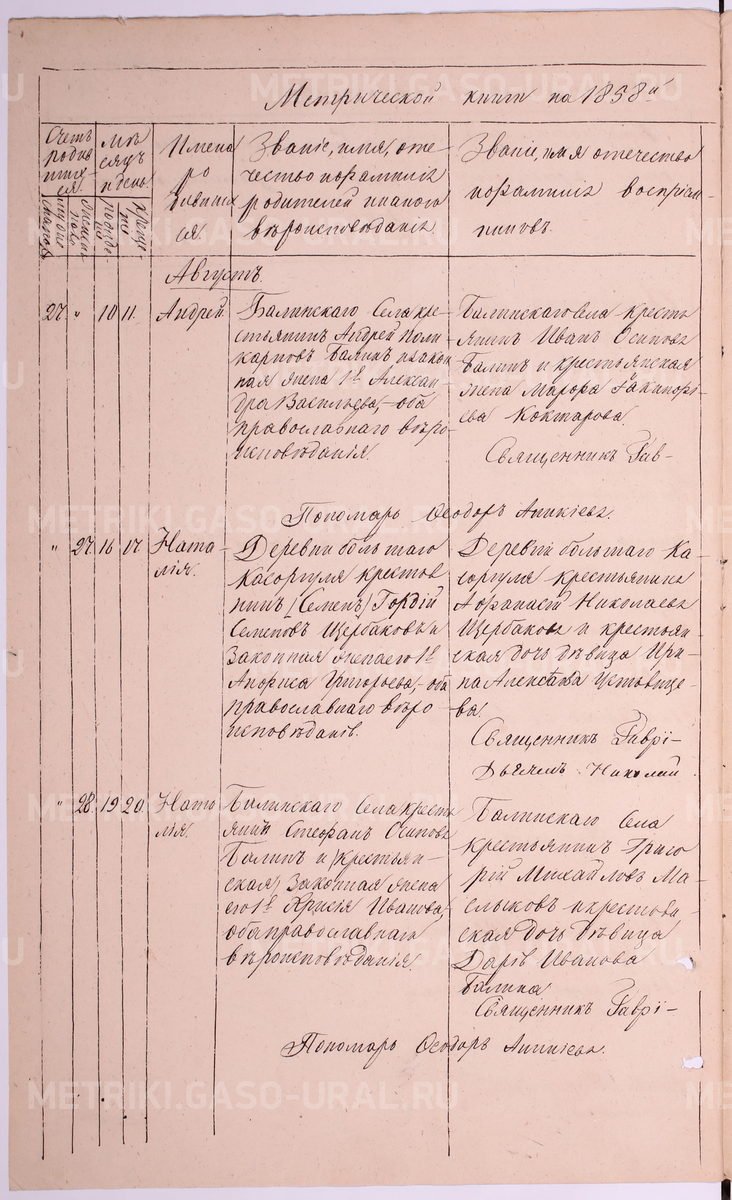 Метрической книги на 1858й
Счетъ родившихся.
мужескаго
женскаго
Мѣсяцъ и день.
рожденія
крещенія
Имена родившихся.
Званіе, имя, оте-
чество и фамилія
родителей и какого
вѣроисповѣданія.
Званіе, имя отечество
и фамилія воспріем-
никовъ.
Августъ.
27. " 10 11. Андрей
Балинскаго Села кре-
стьянинъ Андрей Поли-
карповъ Балинъ и закон-
ная жена 1ѣ Алексан-
дра Васильева,- оба
православнаго вѣро-
исповѣданія.
Балинскаго села кресть
янинъ Иванъ Осиповъ
Балинъ и крестьянская
жена Марфа
ева Коктарова.
Священникъ Гав-
Пономарь Ѳеодоръ Аникіевъ.
" 27. 16 17. Ната-
лія.
Деревни большаго
Касоргуля крестья
нинъ (Семенъ) Гордій
Семеновъ Щербаковъ и
Законная жена его 1ѣ
Анфиса Григорьева,- оба
православнаго вѣро-
исповѣданія.
Деревни большаго Ка-
соргуля крестьянинъ
Афанасій Николаевъ
Щербаковъ и крестьян-
ская дочь дѣвица Ири-
на Алексѣева
ва.
Священникъ Гаврі-
Дьячекъ Николай
" 28. 19 20. Ната
лія.
Балинскаго Села кресть
янинъ Стефанъ Осиповъ
Балинъ и (крестьян-
ская) Законная жена
его 1ѣ Ксенія Иванова,
оба православнаго
вѣроисповѣданія.
Балинскаго Села
крестьянинъ Григо
рій Михайловъ Ма-
слыковъ и крестьян-
ская дочь дѣвица
Дарія Иванова
Балина.
Священникъ Гаврі-
Пономарь Ѳеодоръ Аникіевъ.
METRIKI.GASO-URAL.RU